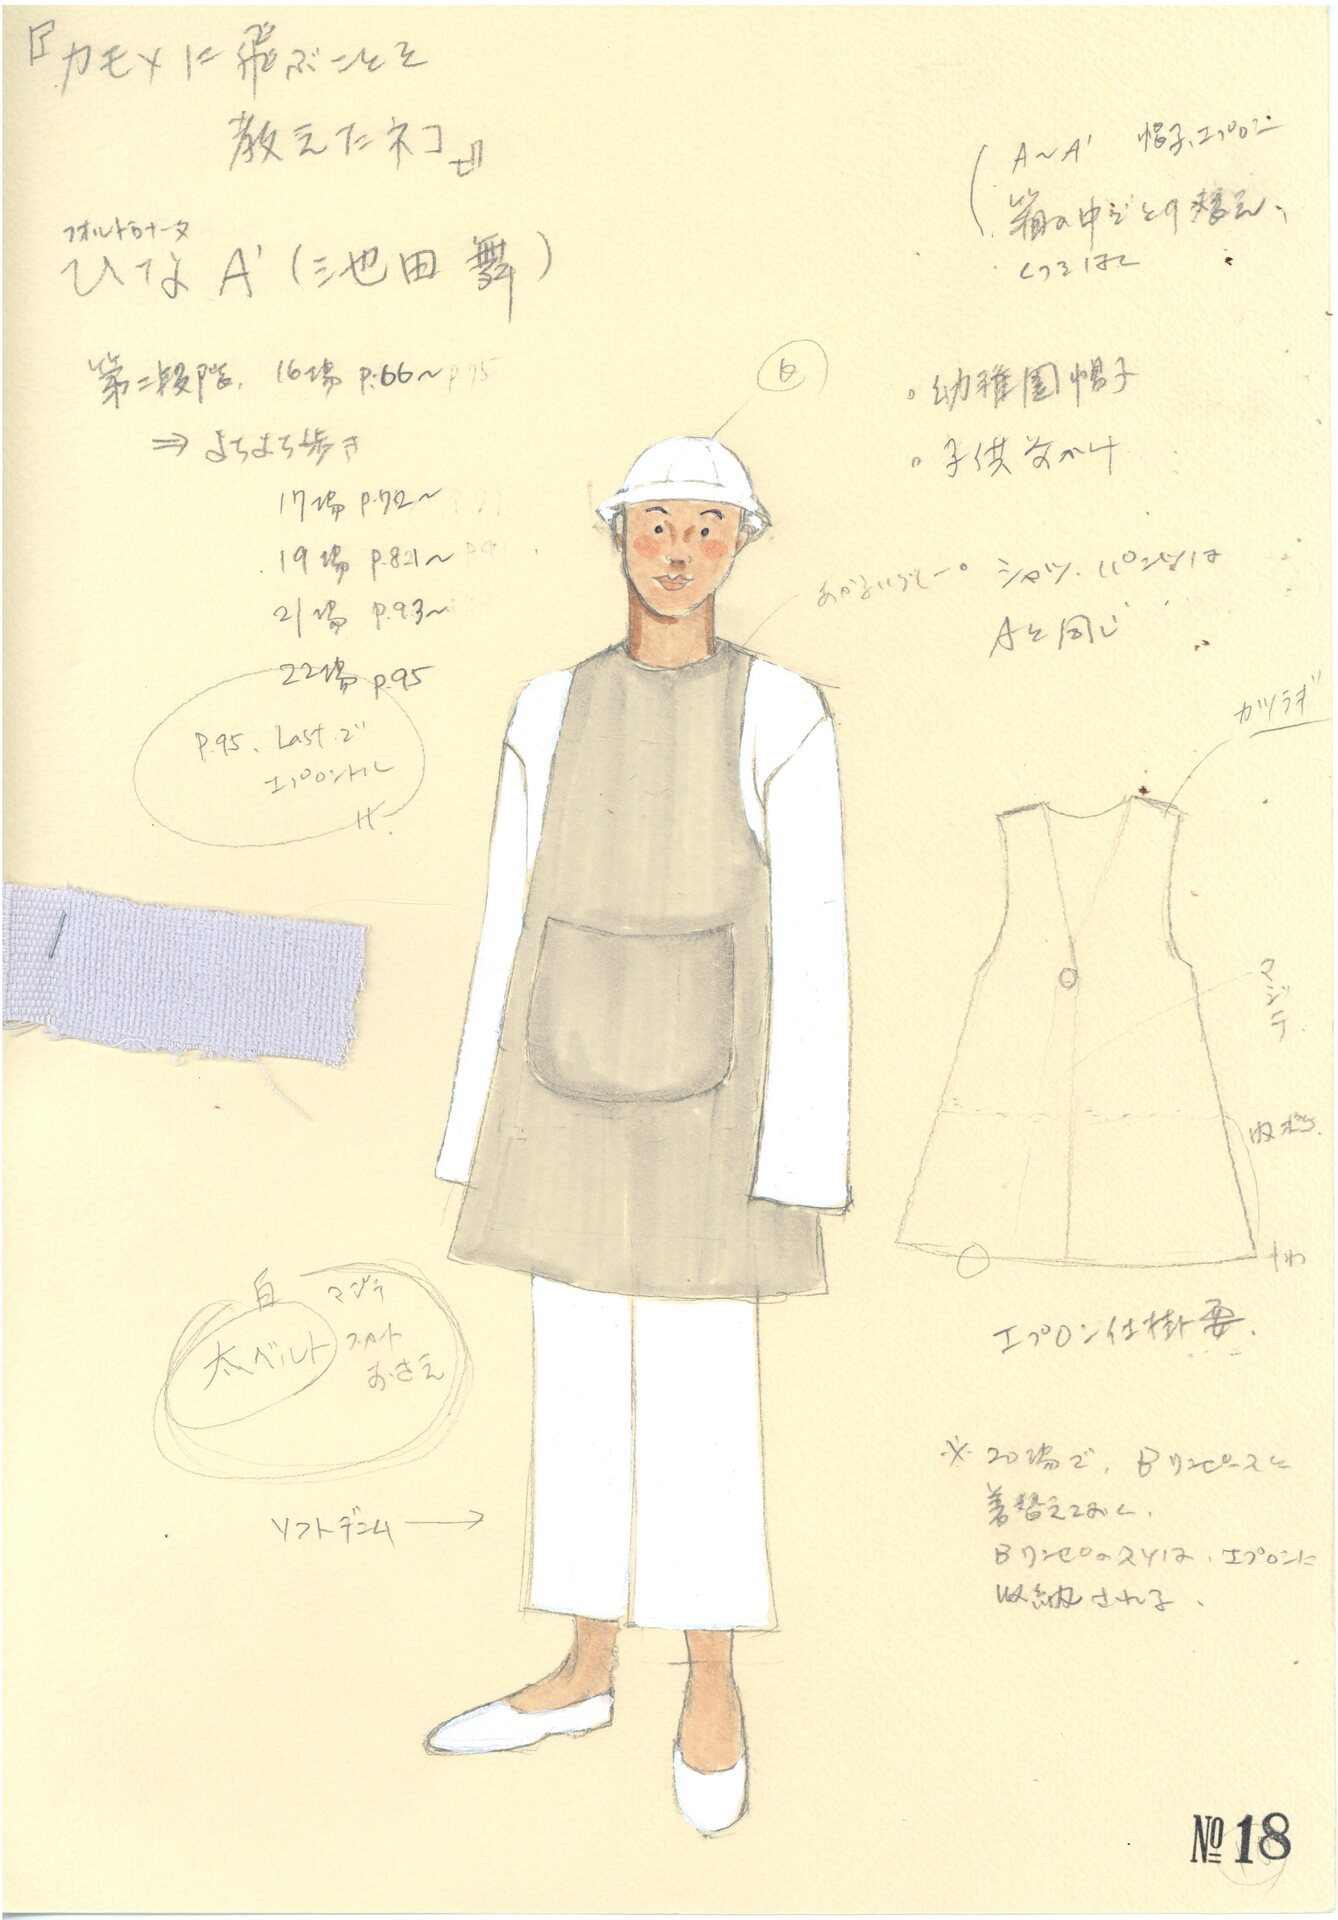 『カモメに飛ぶことを
教えたネコ』
フォルトゥナータ
ひな A'(池田 舞)
第二段階、16場 P.66~P.95
⇒ よちよち歩き
17場 P.72~
19場 P.81~
21場 P.93~
22場 P.95
P.95、Lastで
エプロン
白 マジテ
太ベルト
スカート
おさえ
ソフトデニム
A~A' 帽子、エプロン
箱の中でとり替え、
白
・幼稚園帽子
・子供
あかるいグレー
・シャツ、パンツは
Aと同じ
カツラギ
マジテ
わ
エプロン仕掛要。
※ 20場で、Bワンピースに
着替えておく。
Bワンピのスソは、エプロンに
収納される。
No 18